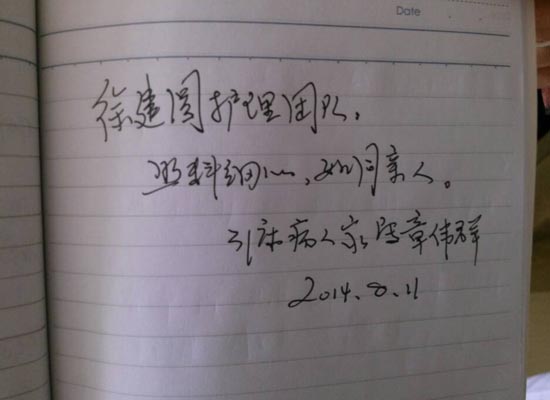 Date
徐建圆护理团队，
照料细心，如同亲人。
31床病人家属章伟群
2014.8.11